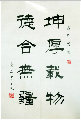 坤厚載物
德合無疆